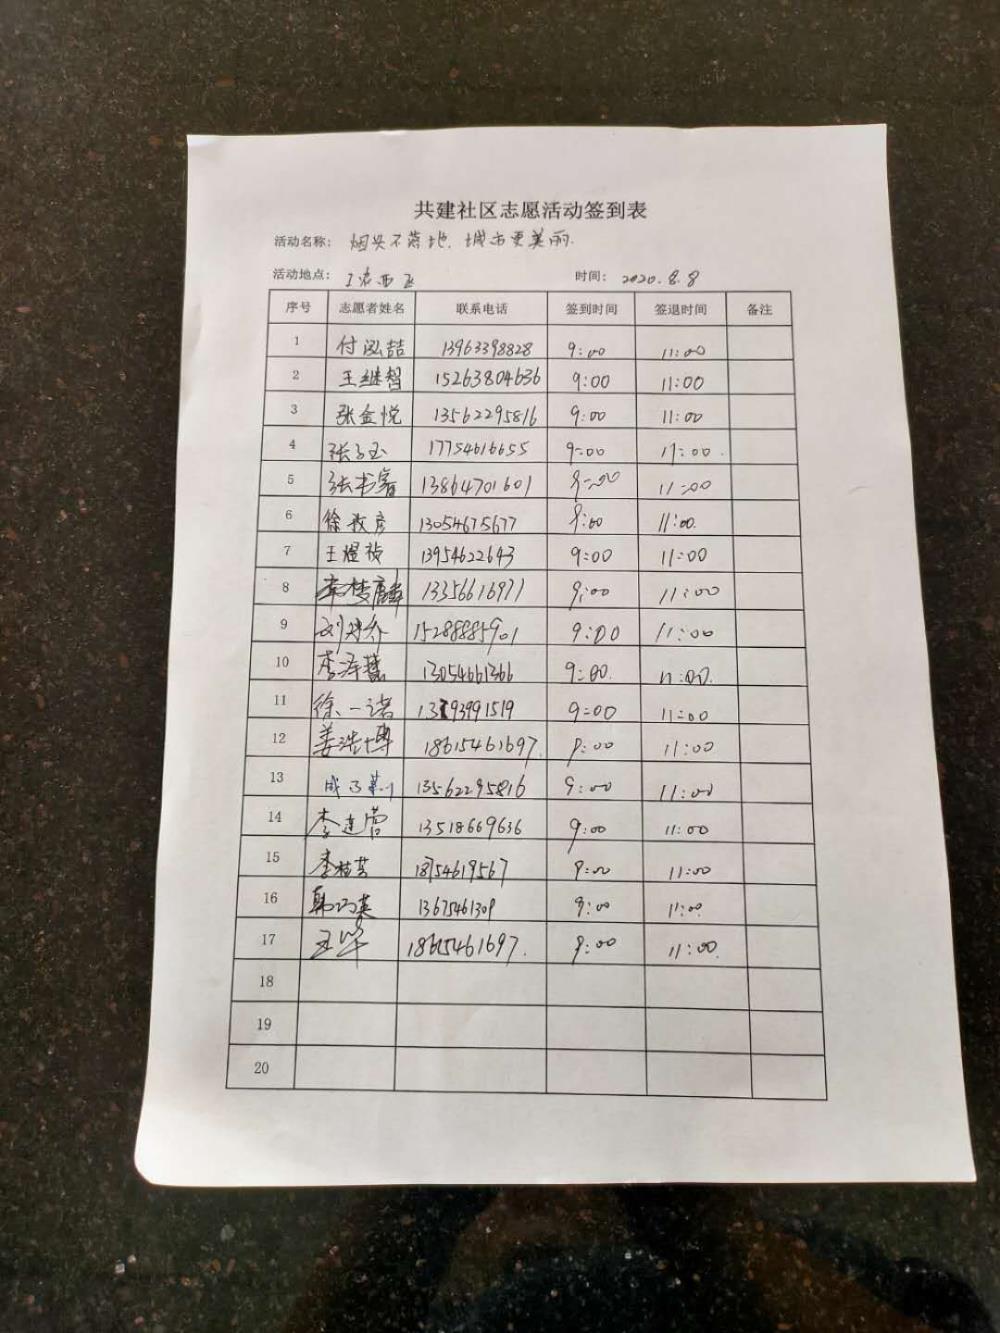 共建社区志愿活动签到表
活动名称： 烟头不落地、城市更美丽.
活动地点： 西 时间： 2020.8.8
序号 志愿者姓名 联系电话 签到时间 签退时间 备注
1 付泓喆 13963398828 9:00 11:00
2 王继智 15263804636 9:00 11:00
3 张金悦 13562295816 9:00 11:00
4 张子玉 17754616655 9:00 11:00
5 张书睿 13864701601 9:00 11:00
6 徐孜彦 13054675677 9:00 11:00
7 王煜祯 13954622643 9:00 11:00
8 李梦麟 13356616971 9:00 11:00
9 刘 15288885901 9:00 11:00
10 李泽慧 13054661366 9:00 11:00
11 徐一诺 13793991519 9:00 11:00
12 姜浩博 18615461697 9:00 11:00
13 成 13562295816 9:00 11:00
14 李连营 13518669636 9:00 11:00
15 李桂芸 18754619567 9:00 11:00
16 韩巧英 13675461309 9:00 11:00
17 王华 18615461697 9:00 11:00
18
19
20